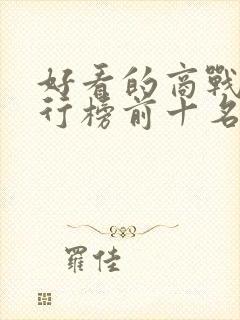 好看的商戰
行榜前十名
羅佳